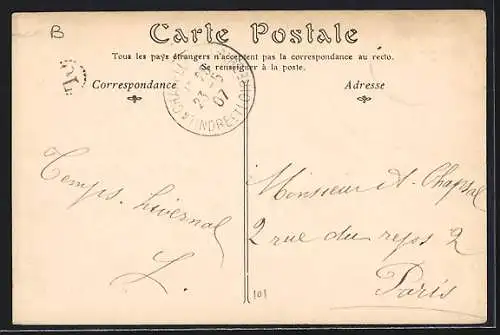 B
Carte Postale
Tous les pays étrangers n'acceptent pas la correspondance au recto.
Se renseigner à la poste.
Correspondance
Adresse
23-5
07
INDRE-ET-LOIRE
Temps hivernal
L.
Monsieur A. Chapsal
2 rue du 2
Paris
101